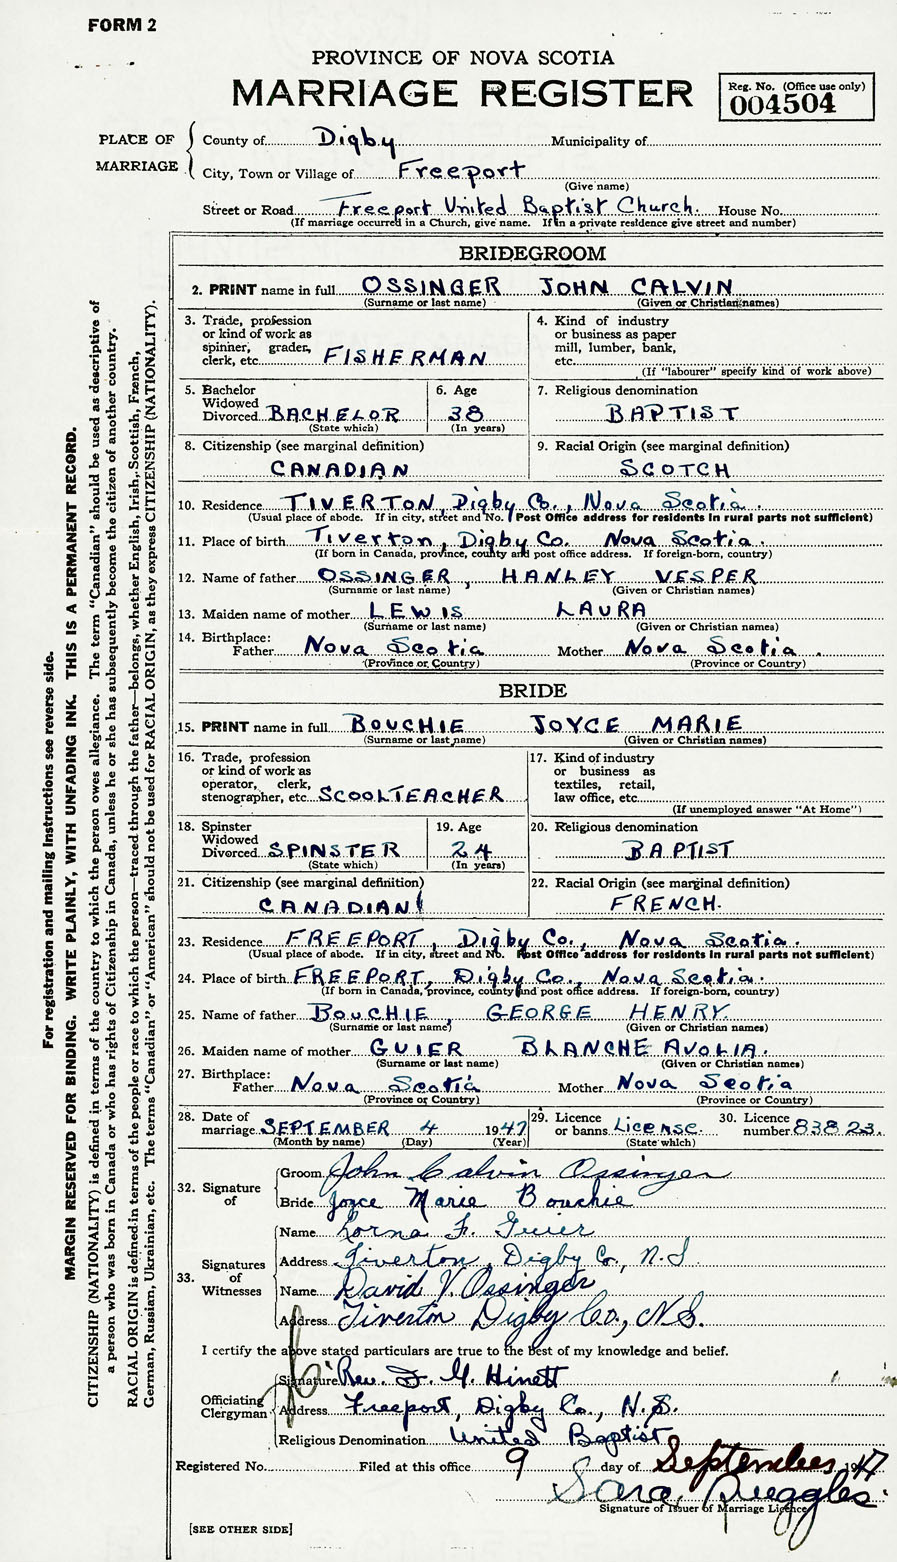 FORM 2
PROVINCE OF NOVA SCOTIA
MARRIAGE REGISTER
Reg. No. (Office use only)
004504
PLACE OF MARRIAGE
County of Digby Municipality of
City, Town or Village of Freeport
(Give name)
Street or Road Freeport United Baptist Church. House No.
(If marriage occurred in a Church, give name. If in a private residence give street and number)
BRIDEGROOM
2. PRINT name in full OSSINGER JOHN CALVIN
(Surname or last name) (Given or Christian names)
3. Trade, profession or kind of work as spinner, grader, clerk, etc. FISHERMAN
4. Kind of industry or business as paper mill, lumber, bank, etc.
(If "labourer" specify kind of work above)
5. Bachelor Widowed Divorced BACHELOR
(State which)
6. Age 38
(In years)
7. Religious denomination
BAPTIST
8. Citizenship (see marginal definition)
CANADIAN
9. Racial Origin (see marginal definition)
SCOTCH
10. Residence TIVERTON, Digby Co., Nova Scotia.
(Usual place of abode. If in city, street and No. Post Office address for residents in rural parts not sufficient)
11. Place of birth Tiverton, Digby Co. Nova Scotia.
(If born in Canada, province, county and post office address. If foreign-born, country)
12. Name of father OSSINGER, HANLEY VESPER
(Surname or last name) (Given or Christian names)
13. Maiden name of mother LEWIS LAURA
(Surname or last name) (Given or Christian names)
14. Birthplace: Father Nova Scotia Mother Nova Scotia.
(Province or Country) (Province or Country)
BRIDE
15. PRINT name in full BOUCHIE JOYCE MARIE
(Surname or last name) (Given or Christian names)
16. Trade, profession or kind of work as operator, clerk, stenographer, etc. SCOOLTEACHER
17. Kind of industry or business as textiles, retail, law office, etc.
(If unemployed answer "At Home")
18. Spinster Widowed Divorced SPINSTER
(State which)
19. Age 24
(In years)
20. Religious denomination
BAPTIST
21. Citizenship (see marginal definition)
CANADIAN
22. Racial Origin (see marginal definition)
FRENCH.
23. Residence FREEPORT, Digby Co., Nova Scotia.
(Usual place of abode. If in city, street and No. Post Office address for residents in rural parts not sufficient)
24. Place of birth FREEPORT, Digby Co., Nova Scotia.
(If born in Canada, province, county and post office address. If foreign-born, country)
25. Name of father BOUCHIE, GEORGE HENRY.
(Surname or last name) (Given or Christian names)
26. Maiden name of mother GUIER BLANCHE AVOLIA.
(Surname or last name) (Given or Christian names)
27. Birthplace: Father Nova Scotia Mother Nova Scotia
(Province or Country) (Province or Country)
28. Date of marriage SEPTEMBER 4 1947
(Month by name) (Day) (Year)
29. Licence or banns License.
(State which)
30. Licence number 83823.
32. Signature of
Groom John Calvin Ossinger
Bride Joyce Marie Bouchie
33. Signatures of Witnesses
Name Lorna F. Guier
Address Tiverton, Digby Co., N.S
Name David V. Ossinger
Address Tiverton Digby Co., N.S.
I certify the above stated particulars are true to the best of my knowledge and belief.
Officiating Clergyman
Signature Rev. F. G. Hinett
Address Freeport, Digby Co., N.S.
Religious Denomination United Baptist
Registered No. Filed at this office 9 day of September 1947
Sara Ruggles.
Signature of Issuer of Marriage Licence
[SEE OTHER SIDE]
For registration and mailing instructions see reverse side.
MARGIN RESERVED FOR BINDING. WRITE PLAINLY, WITH UNFADING INK. THIS IS A PERMANENT RECORD.
CITIZENSHIP (NATIONALITY) is defined in terms of the country to which the person owes allegiance. The term "Canadian" should be used as descriptive of
a person who was born in Canada or who has rights of Citizenship in Canada, unless he or she has subsequently become the citizen of another country.
RACIAL ORIGIN is defined in terms of the people or race to which the person—traced through the father—belongs, whether English, Irish, Scottish, French,
German, Russian, Ukrainian, etc. The terms "Canadian" or "American" should not be used for RACIAL ORIGIN, as they express CITIZENSHIP (NATIONALITY).